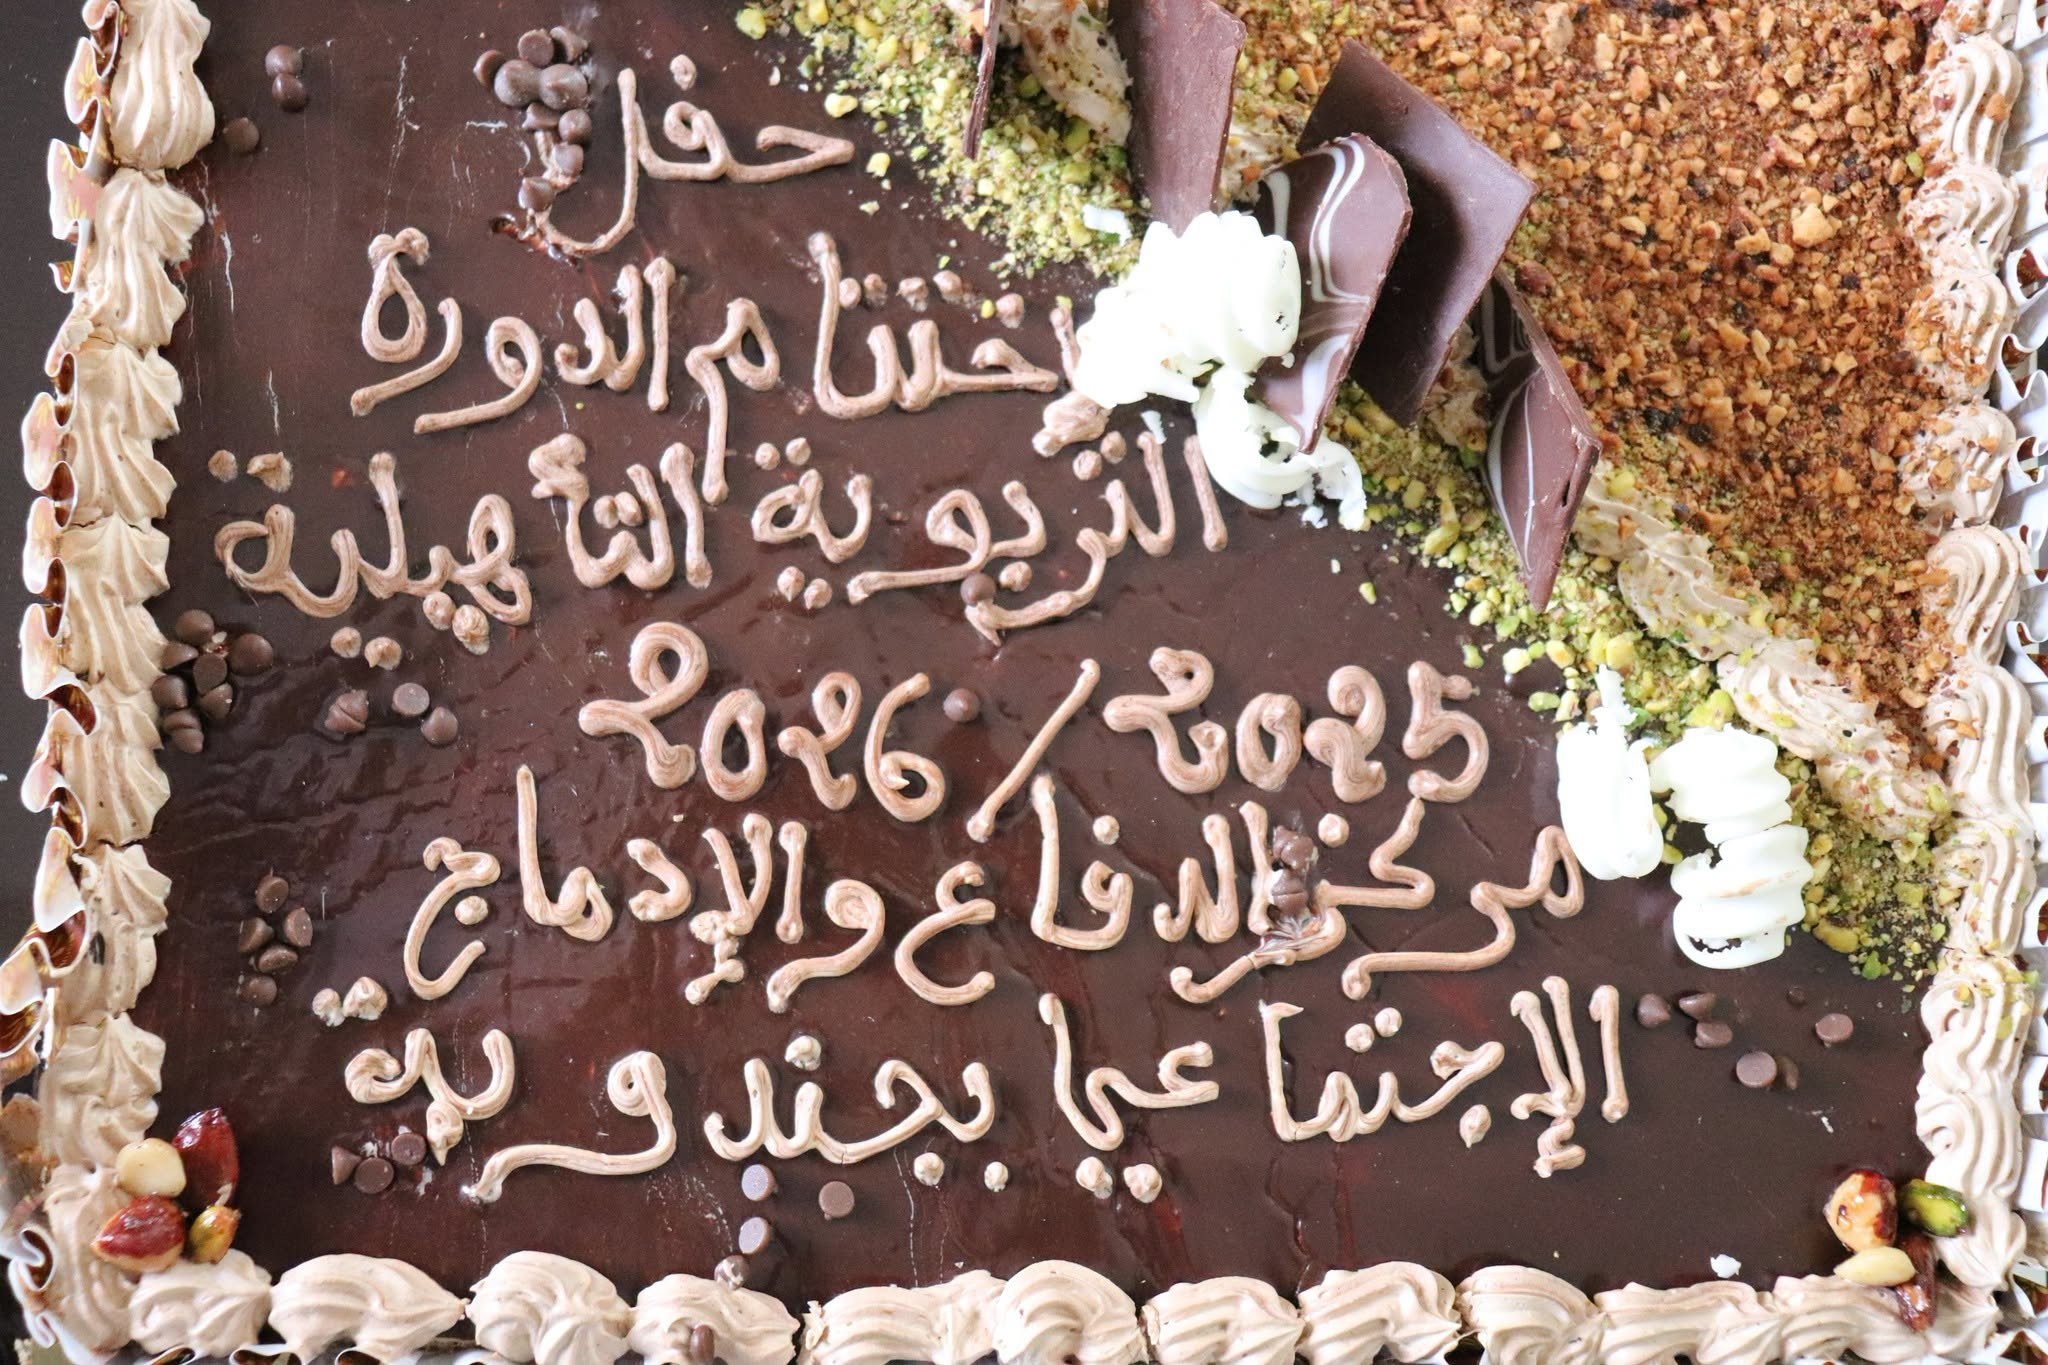 حفل
اختتام الدورة
التربوية التأهيلية
2026 / 2025
مركز الدفاع والإدماج
الإجتماعي بجندوبة